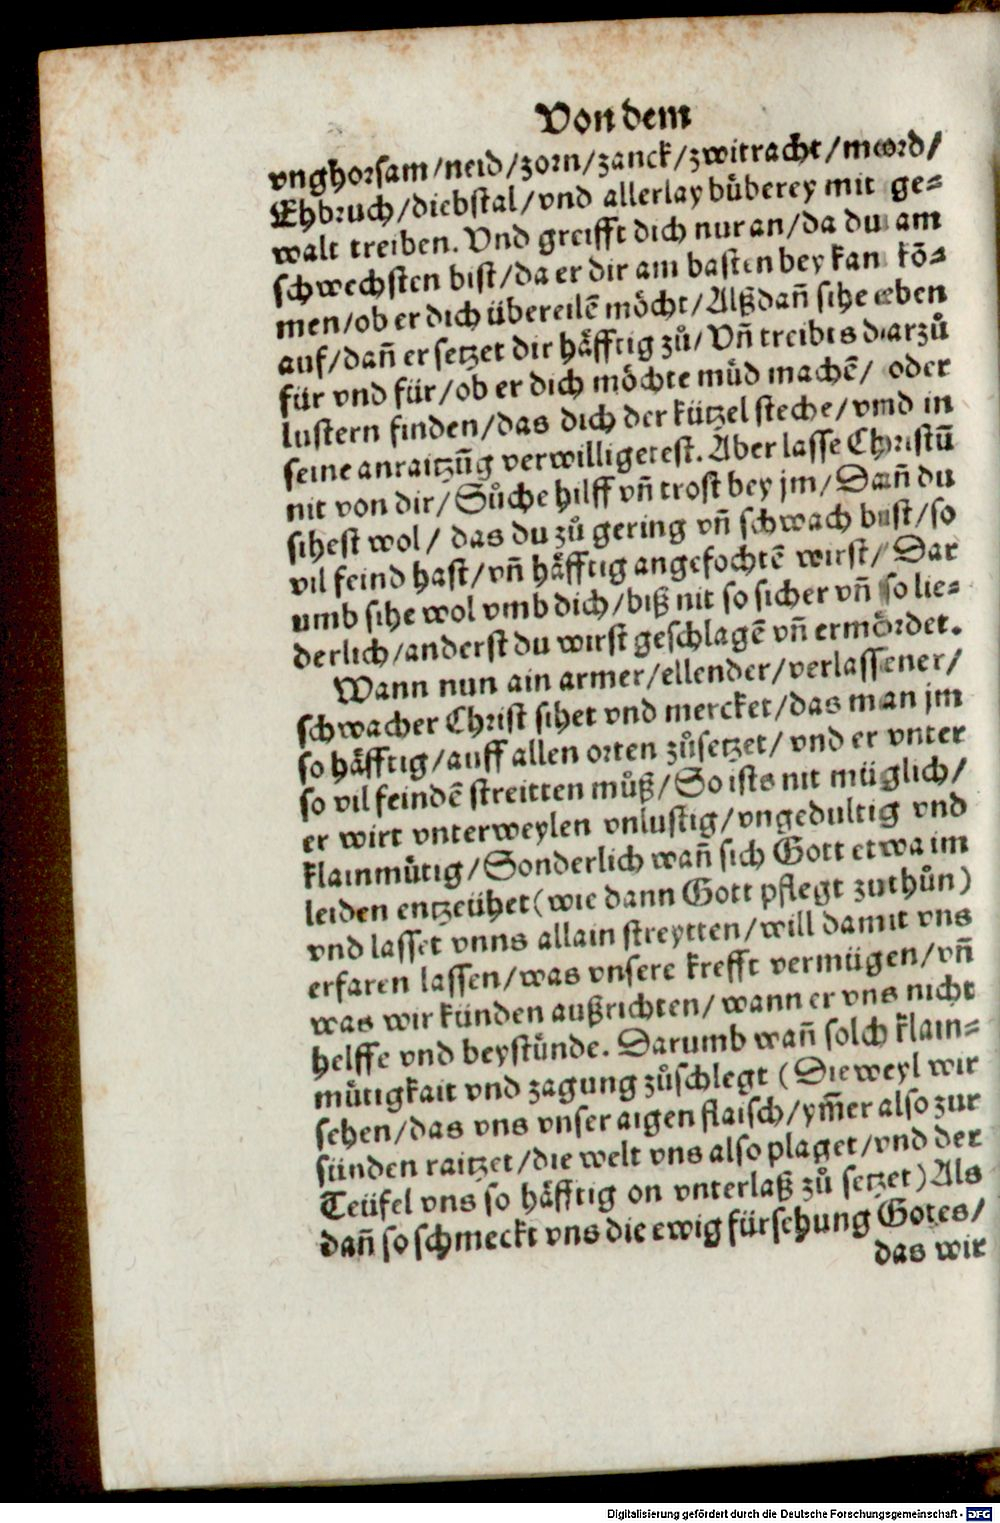 Von dem
vnghorsam/neid/zorn/zanck/zwitracht/moord/
Ehbruch/diebstal/vnd allerlay bůberey mit ge⸗
walt treiben. Vnd greifft dich nur an/da du am
schwechsten bist/da er dir am basten bey kan kō⸗
men/ob er dich übereilē möcht/Alßdañ sihe eben
auf/dañ er setzet dir häfftig zů/Vñ treibts darzů
für vnd für/ob er dich möchte müd machē/ oder
lustern finden/das dich der kützel steche/vnnd in
seine anraitzūg verwilligetest. Aber lasse Christū
nit von dir/Sůche hilff vñ trost bey jm/Dañ du
sihest wol/ das du zů gering vñ schwach bist/so
vil feind hast/vñ häfftig angefochtē wirst/ Dar
umb sihe wol vmb dich/biß nit so sicher vñ so lie⸗
derlich/anderst du wirst geschlagē vñ ermördet.
Wann nun ain armer/ellender/verlassener/
schwacher Christ sihet vnd mercket/das man jm
so häfftig/auff allen orten zůsetzet/ vnd er vnter
so vil feindē streitten můß/So ists nit müglich/
er wirt vnterweylen vnlustig/vngedultig vnd
klainmütig/Sonderlich wañ sich Gott etwa im
leiden entzeühet(wie dann Gott pflegt zuthůn)
vnd lasset vnns allain streytten/will damit vns
erfaren lassen/was vnsere krefft vermügen/vñ
was wir künden außrichten/wann er vns nicht
helffe vnd beystünde. Darumb wañ solch klain⸗
mütigkait vnd zagung zůschlegt (Die weyl wir
sehen/das vns vnser aigen flaisch/ym̃er also zur
sünden raitzet/die welt vns also plaget/vnd der
Teüfel vns so häfftig on vnterlaß zů setzet) Als
dañ so schmeckt vns die ewig fürsehung Gotes/
das wir
Digitalisierung gefördert durch die Deutsche Forschungsgemeinschaft - DFG